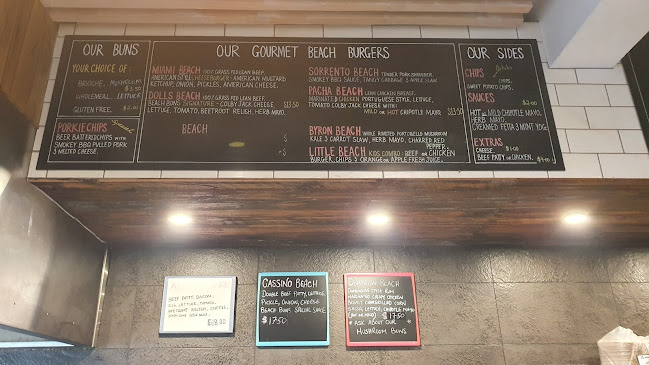 OUR BUNS
YOUR CHOICE OF:
BRIOCHE, MUSHROOM
$3.50
WHOLEMEAL, LETTUCE
GLUTEN FREE. $2.00
PORKIE CHIPS Special
BEER BATTERED CHIPS WITH
SMOKEY BBQ PULLED PORK
& MELTED CHEESE.
OUR GOURMET BEACH BURGERS
MIAMI BEACH 100% GRASS FED LEAN BEEF,
AMERICAN STYLE CHEESEBURGER, AMERICAN MUSTARD
KETCHUP, ONION, PICKLES, AMERICAN CHEESE.
DOLLS BEACH 100% GRASS FED LEAN BEEF,
BEACH BUNS SIGNATURE - COLBY JACK CHEESE, $13.50
LETTUCE, TOMATO, BEETROOT RELISH, HERB MAYO.
BEACH
SORRENTO BEACH TENDER PORK SHOULDER,
SMOKEY BBQ SAUCE, TANGY CABBAGE & APPLE SLAW
PACHA BEACH LEAN CHICKEN BREAST,
MARINATED CHICKEN PORTUGUESE STYLE, LETTUCE,
TOMATO COLBY JACK CHEESE WITH
MILD OR HOT CHIPOTLE MAYO $13.50
BYRON BEACH WHOLE ROASTED PORTOBELLO MUSHROOM
KALE & CARROT SLAW, HERB MAYO, CHARRED RED
PEPPER.
LITTLE BEACH KIDS COMBO: BEEF OR CHICKEN
BURGER, CHIPS & ORANGE OR APPLE FRESH JUICE.
OUR SIDES
CHIPS
CHIPS,
SWEET POTATO CHIPS.
SAUCES
$2.00
HOT OR MILD CHIPOTLE MAYO,
HERB MAYO,
CREAMED FETA & MINT YOG.
EXTRAS
CHEESE $1.00
BEEF PATTY OR CHICKEN. $4.00
BEEF PATTY, BACON,
EGG, LETTUCE, TOMATO,
BEETROOT RELISH, CHEESE,
$18.00
CASSINO BEACH
DOUBLE BEEF PATTY, LETTUCE,
PICKLE, ONION, CHEESE
BEACH BUNS SPECIAL SAUCE
$17.50
BEACH
STYLE RUM
MARINATED CRISPY CHICKEN
BREAST CHARGRILLED CORN
SALSA, LETTUCE, CHIPOTLE MAYO
(HOT OR MILD) $17.50
* ASK ABOUT OUR
MUSHROOM BUNS